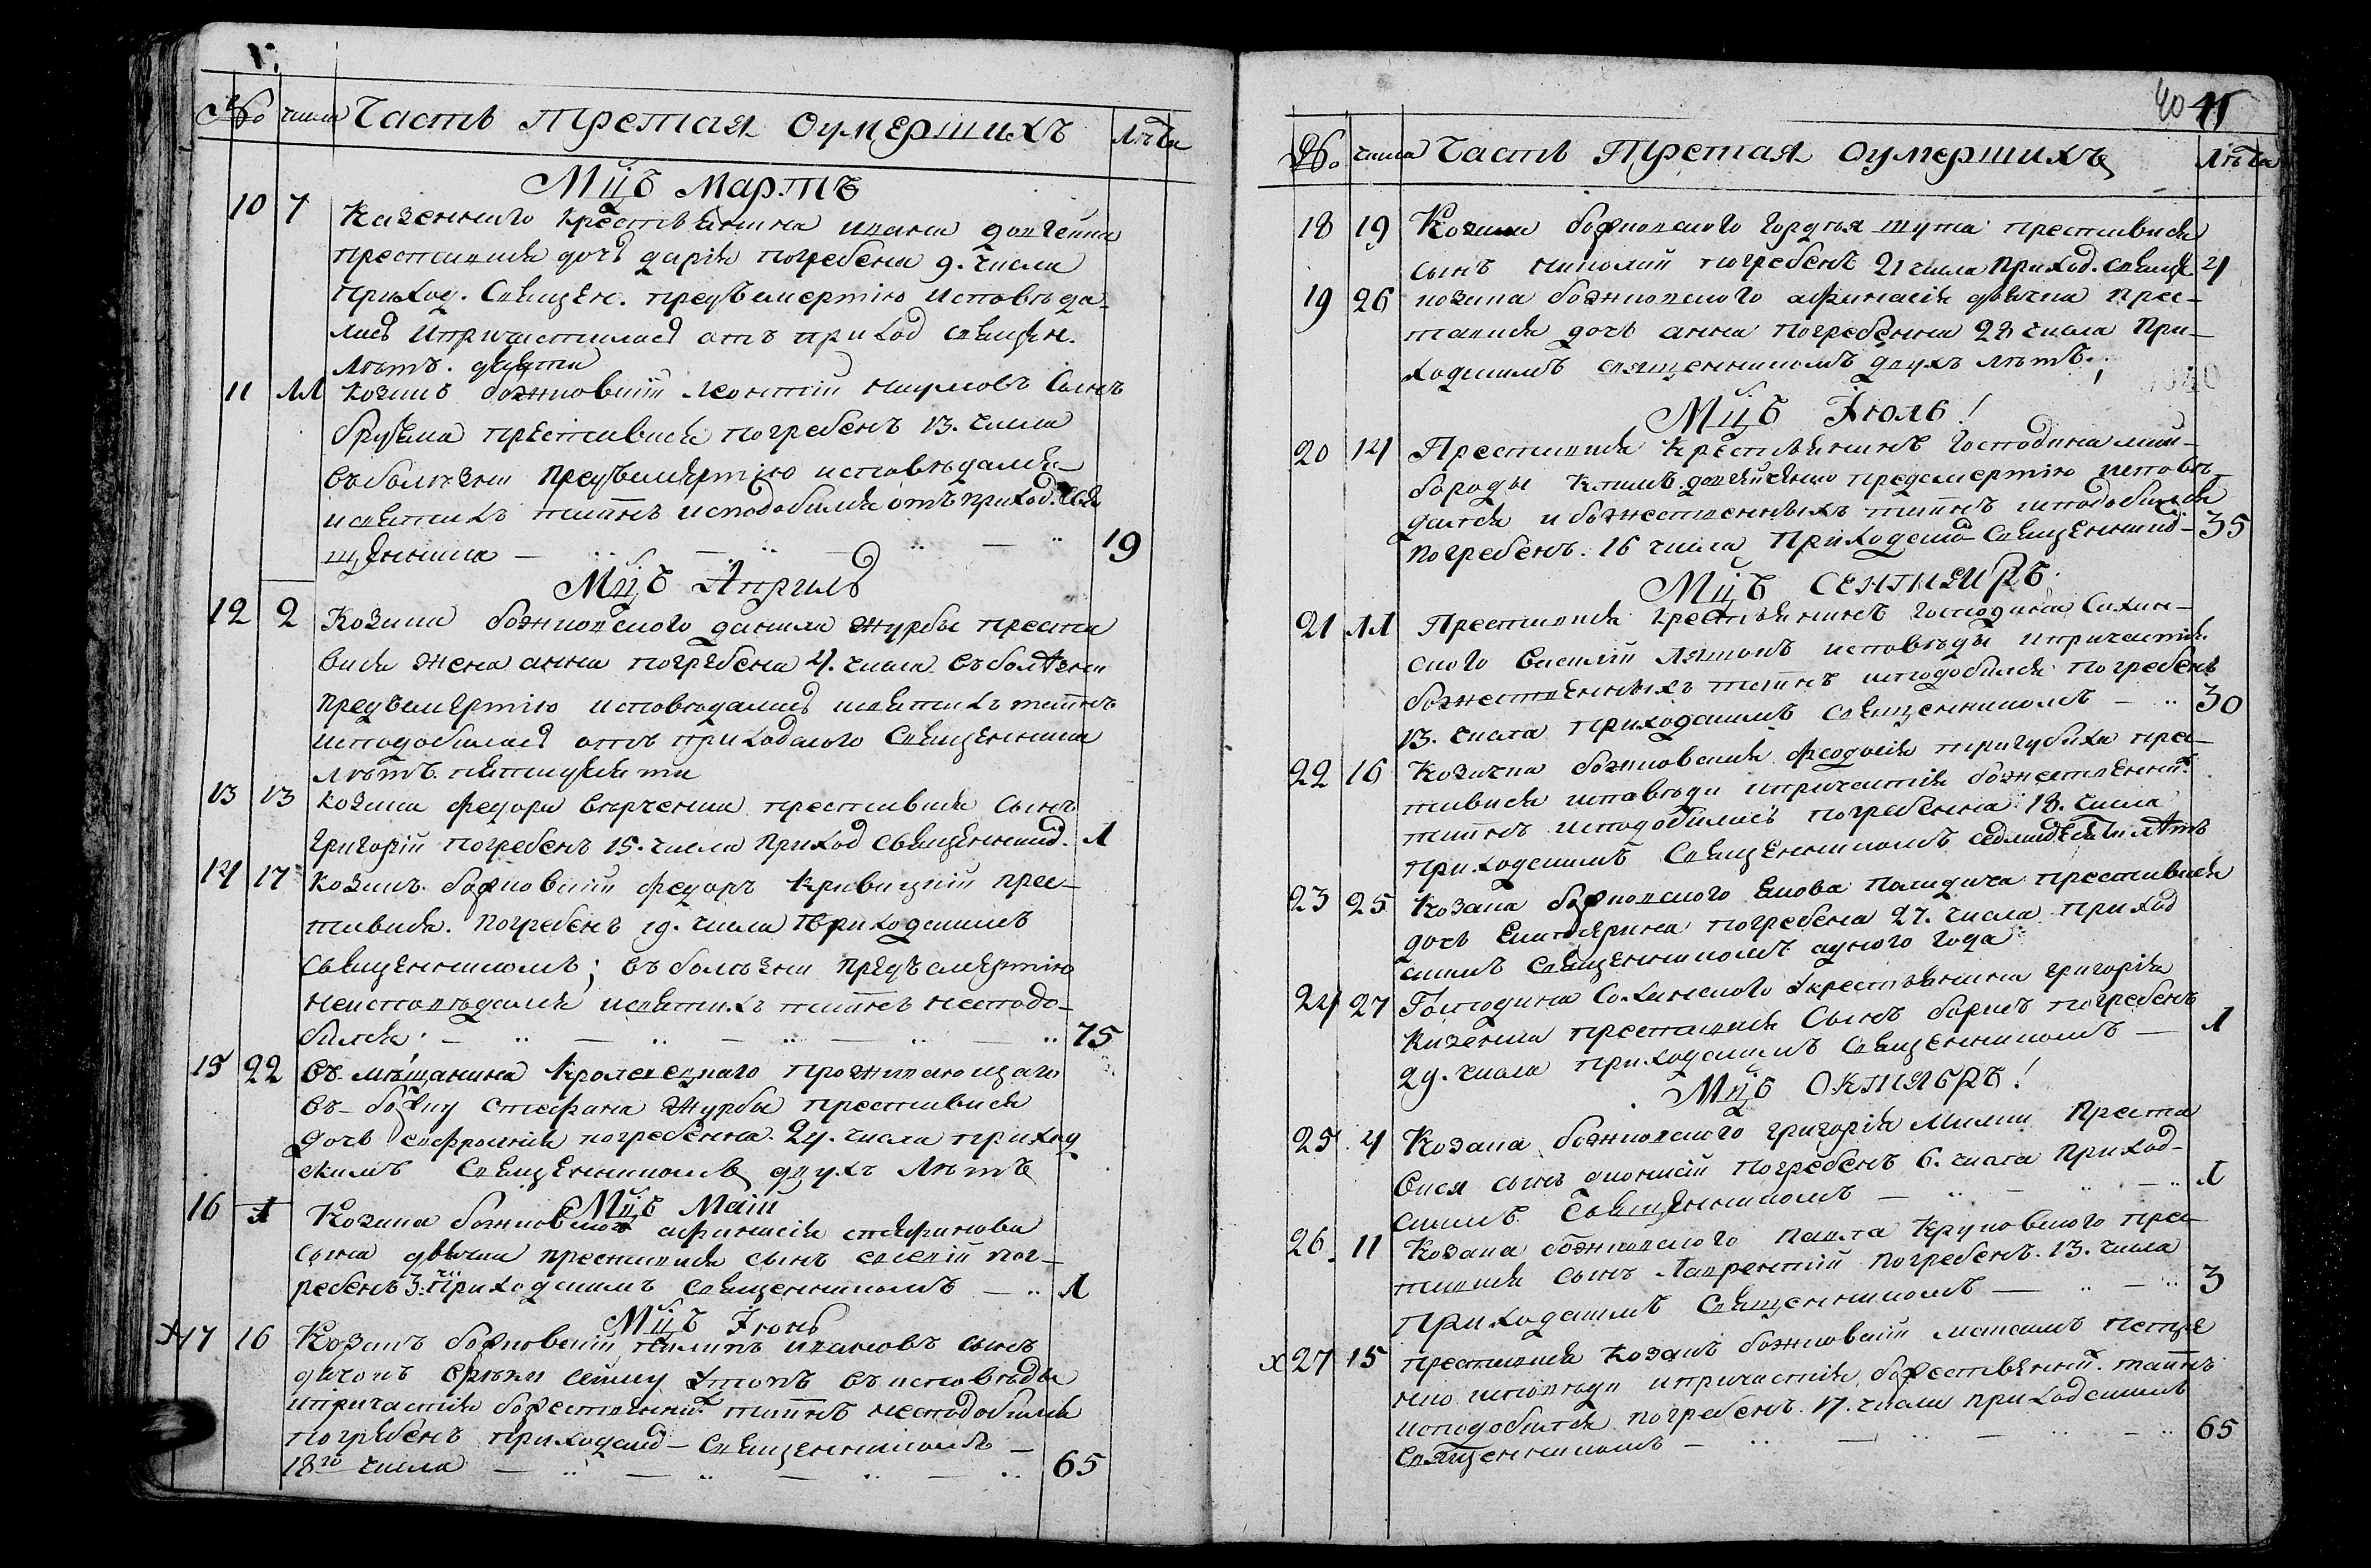 № числа Часть Третая Оумершихъ Лѣта
Мцъ Мартъ
10 7 Казенного крестьянина ивана
преставися дочь дарія погребена 9. числа
приход. священ. предъсмертію исповѣда-
лась ипричастилась отъ приход священ.
лѣтъ.
11 11 Козакъ божковскій леонтій наумовъ сынъ
преставися погребенъ 13. числа
въболѣзни предъсмертію исповѣдался
исвятихъ таинъ исподобился отъ приход. свя
щенника — 19
Мцъ Априль
12 2 Козака божковского данила журбы преста
вися жена анна погребена 4. числа въболѣзни
предъсмертію исповѣдалась исвятихъ таинъ
исподобилась отъ приходского священника
лѣтъ пятидесяти
13 13 козака федора преставися сынъ
григорій погребенъ 15. числа приход священникъ. 1
14 17 козакъ божковскій федоръ кривицкій прес-
тавися. погребенъ 19. числа приходскимъ
священникомъ; въболѣзни предъсмертію
неисповѣдался исвятихъ таинъ несподо-
бился. — 75
15 22 въ мѣщанина кролевецкаго проживающаго
въ божку стефана журбы преставися
дочь софронія погребенна 24. числа приход
скимъ священникомъ двухъ лѣтъ
Мцъ Маій
16 1 Козака божковского афанасія стефанова
сына преставися сынъ пог-
ребенъ 3. приходскимъ священникомъ — 1
Мцъ Іюнь
х17 16 Козакъ божковскій ивановъ сынъ
исповѣды
ипричастія божественних таинъ несподобился
погребенъ приходскъ — священникомъ —
18го числа — 65
40 45
№ числа Часть Третая Оумершихъ Лѣта
18 19 Козака божковского преставися
сынъ николай погребенъ 21 числа приход. свяще 4
19 26 козака божковского афанасія прес-
тавися дочь анна погребенна 28 числа при-
ходскимъ священникомъ двухъ лѣтъ.
Мцъ Іюль!
20 14 Преставися крестьянинъ господина мило-
бороды предсмертію исповѣ
дался и божественныхъ таинъ исподобился
погребенъ. 16 числа приходскъ священникъ — 35
Мцъ Сентябръ.
21 11 Преставися крестьянинъ господина Сахан-
ского василій исповѣды ипричастія
божественныхъ таинъ исподобился погребенъ
13. числа приходскимъ священникомъ — 30
22 16 Козачка божковская феодосія тригубиха прес-
тавися исповѣди ипричастія божественных
таинъ исподобилась погребенна 18. числа
приходскимъ священникомъ седмидесяти лѣтъ
23 25 Козака божковского преставися
дочь екатерина погребена 27. числа приход
скимъ священникомъ аднаго года
24 27 Господина Саханского крестьянина григорія
преставися сынъ борисъ погребенъ
29. числа приходскимъ священникомъ — 1
Мцъ Октябръ!
25 4 Козака божковского григорія преста
вися сынъ діонисій погребенъ 6. числа приход-
скимъ священникомъ — 1
26 11 Козака божковского павла круковского прес-
тавися сынъ лаврентій погребенъ. 13. числа
приходскимъ священникомъ — 3
х27 15 преставися козакъ божковскій максимъ
исповѣди ипричастія божественних таинъ
исподобился погребенъ 17. числа приходскимъ
священникомъ — 65